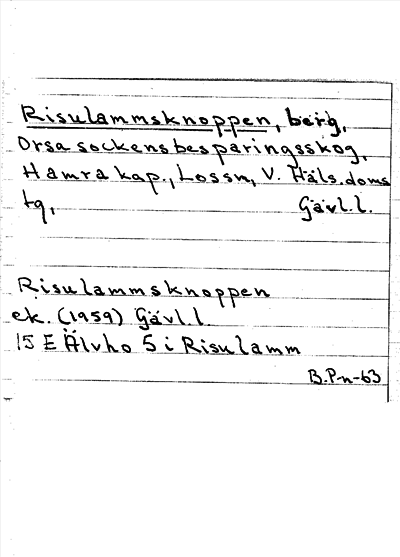 Risulammsknoppen, berg,
Orsa sockens besparingsskog,
Hamra kap., Lossn, V. Häls. doms
tg, Gävl.l.
Risulammsknoppen
ek. (1959) Gävl.l.
15 E Älvho 5 i Risulamm
B.P-n-63